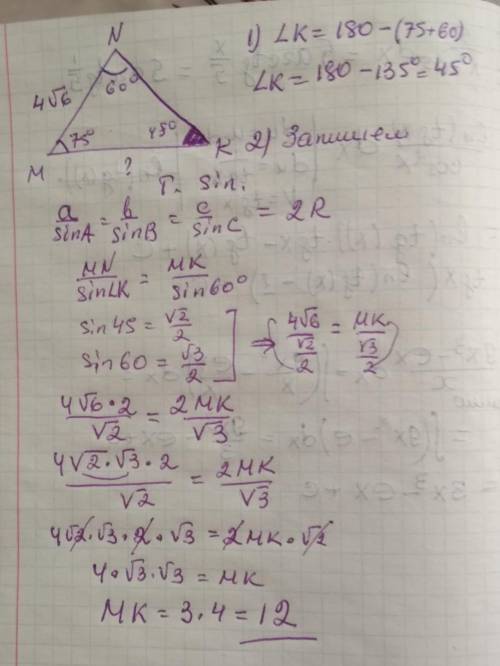 N
1) ∠K = 180 - (75+60)
∠K = 180 - 135° = 45°
4√6
60°
75°
45°
M
K
?
2) Запишем
Т. sin.
a/sinA = b/sinB = c/sinC = 2R
MN/sin∠K = MK/sin60°
sin45 = √2/2
sin60 = √3/2
⇒ 4√6/(√2/2) = MK/(√3/2)
4√6•2/√2 = 2MK/√3
4√2•√3•2/√2 = 2MK/√3
4√2•√3•2•√3 = 2MK•√2
4•√3•√3 = MK
MK = 3•4 = 12